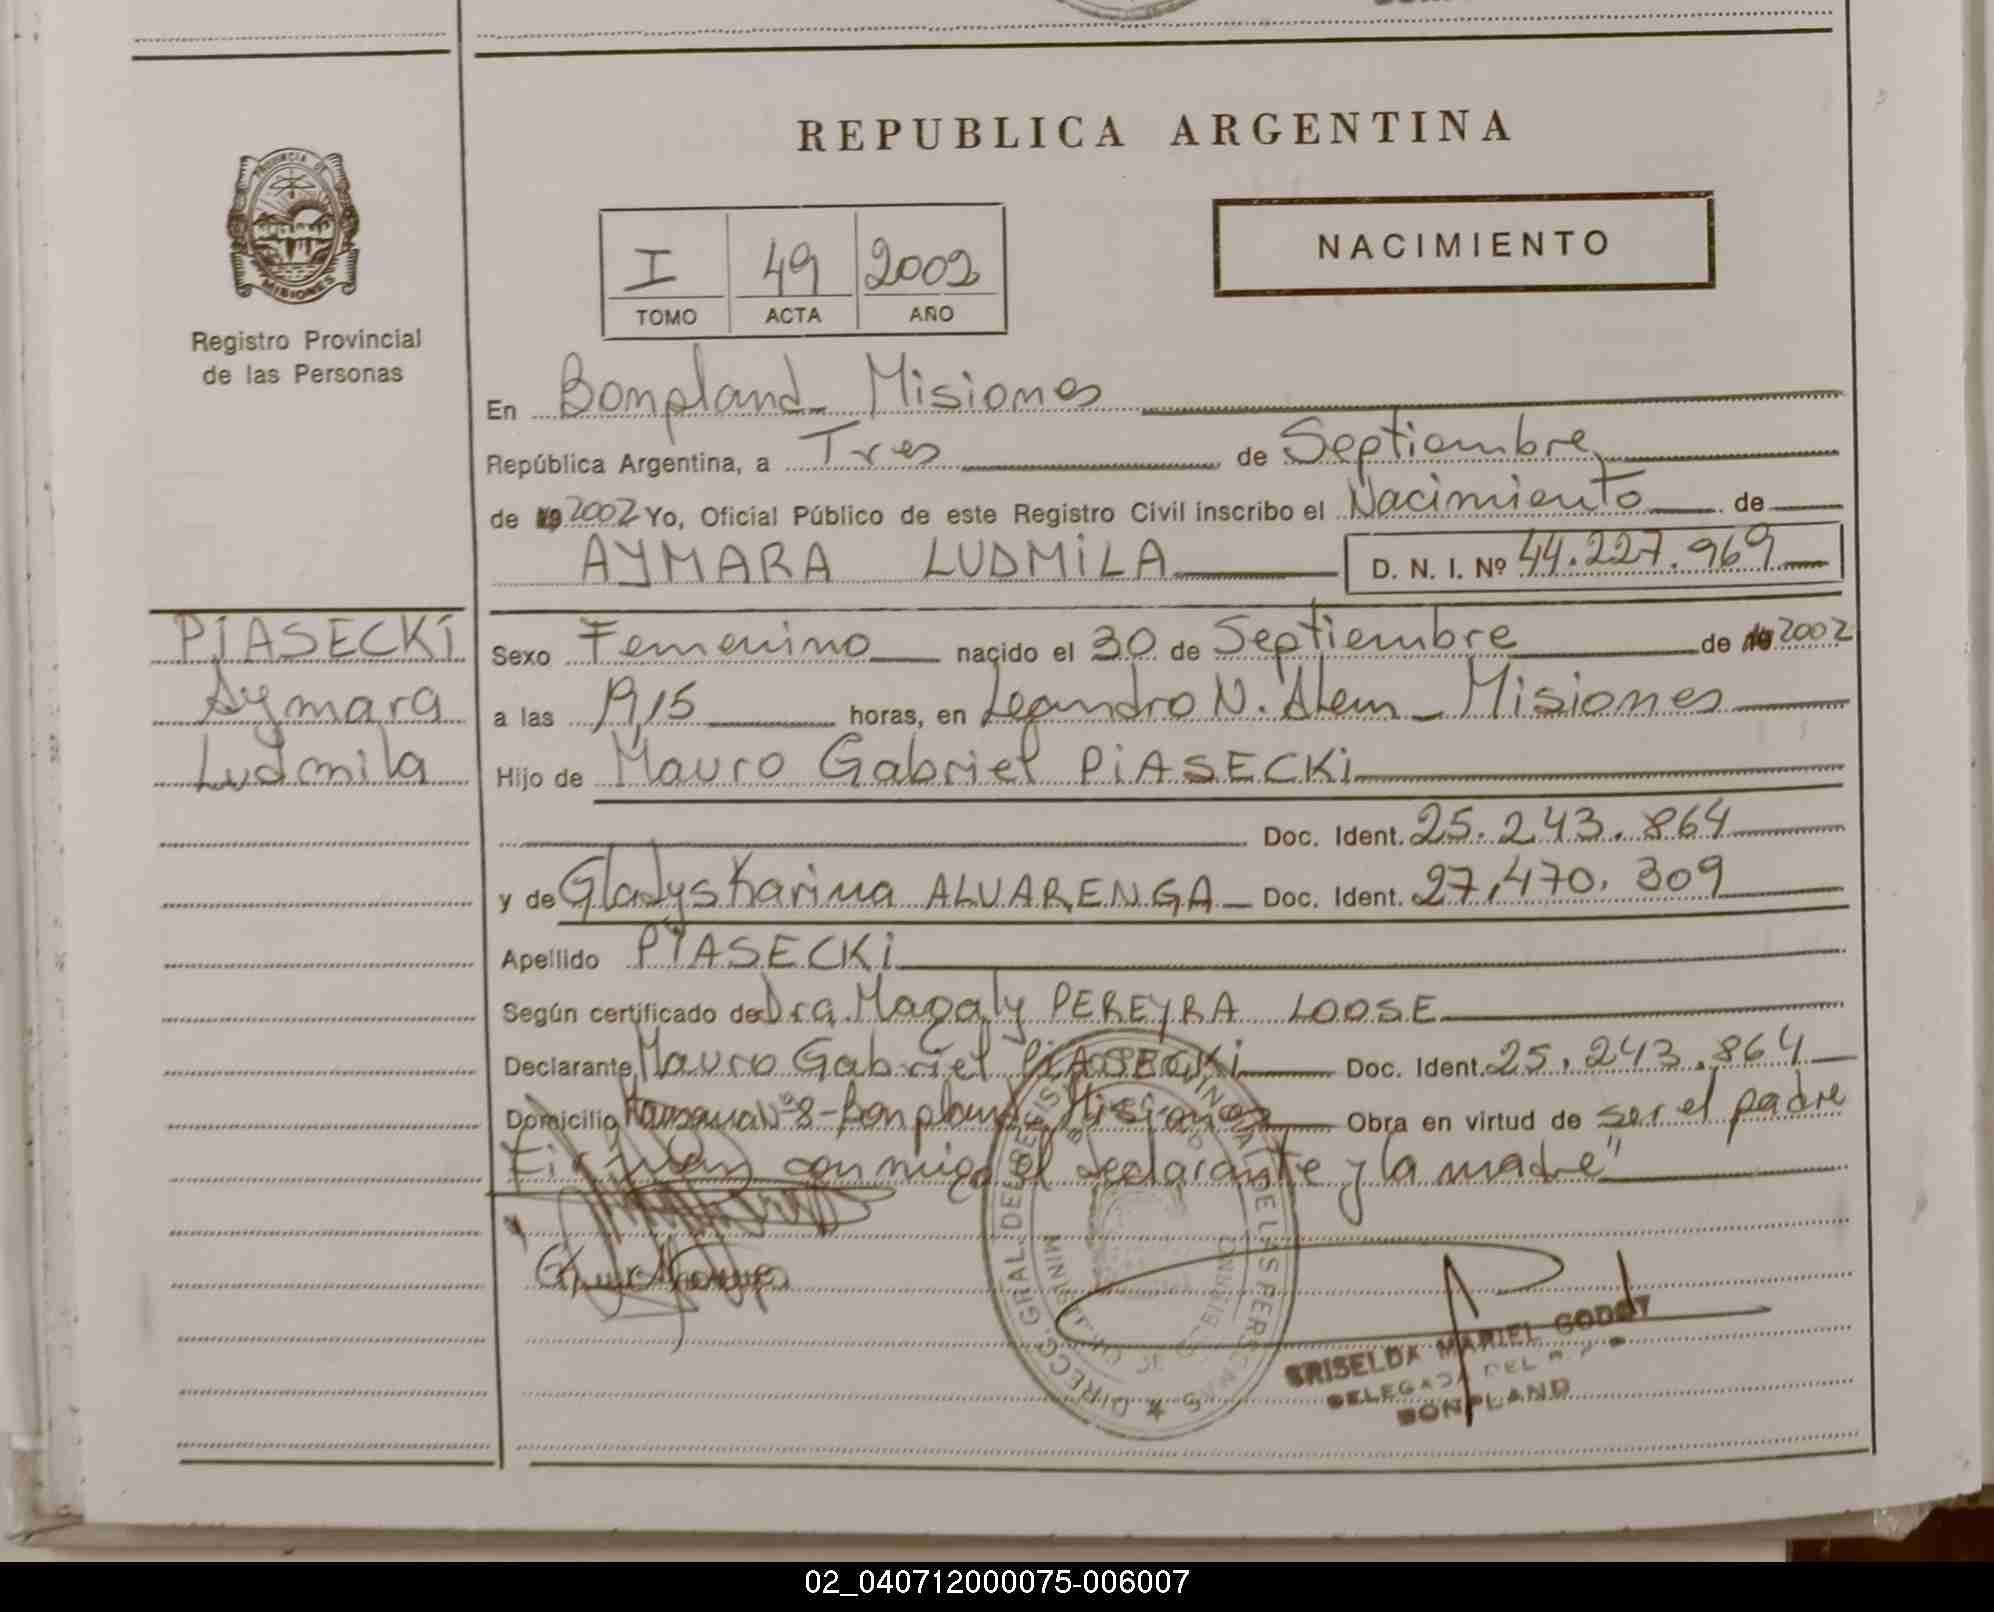 REPUBLICA ARGENTINA
PROVINCIA DE
MISIONES
Registro Provincial
de las Personas
I 49 2002
TOMO ACTA AÑO
NACIMIENTO
En Bonpland - Misiones
República Argentina, a Tres de Septiembre
de 19 2002 Yo, Oficial Público de este Registro Civil inscribo el Nacimiento de
AYMARA LUDMILA D. N. I. Nº 44.227.969
PIASECKI
Aymara
Ludmila
Sexo Femenino nacido el 30 de Septiembre de 19 2002
a las 19,15 horas, en Leandro N. Alem - Misiones
Hijo de Mauro Gabriel PIASECKI
Doc. Ident. 25.243.864
y de Gladys Karina ALVARENGA Doc. Ident. 27.470.309
Apellido PIASECKI
Según certificado de Dra. Magaly PEREYRA LOOSE
Declarante Mauro Gabriel PIASECKI Doc. Ident. 25.243.864
Domicilio Nº 8 - Bonpland, Misiones Obra en virtud de ser el padre
Firman conmigo el declarante y la madre"
DIRECC. GRAL. DEL REGISTRO PROVINCIAL DE LAS PERSONAS
GRISELDA MARIEL GODOY
DELEGADA DEL R. P. P.
BONPLAND
02_040712000075-006007